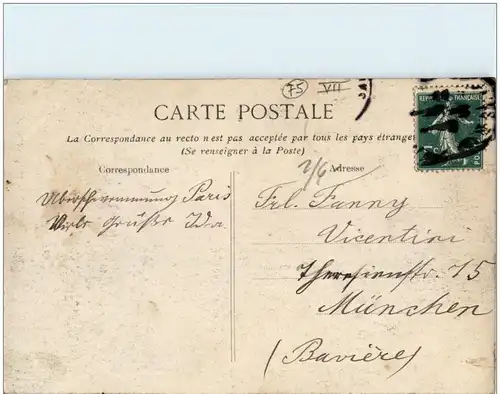 75
VII
CARTE POSTALE
La Correspondance au recto n'est pas acceptée par tous les pays étranger
(Se renseigner à la Poste)
Correspondance
Adresse
2/6
Überschwemmung Paris
Viele Grüße Ida
Frl. Fanny
Vicentini
Theresienstr. 75
München
(Bavière)